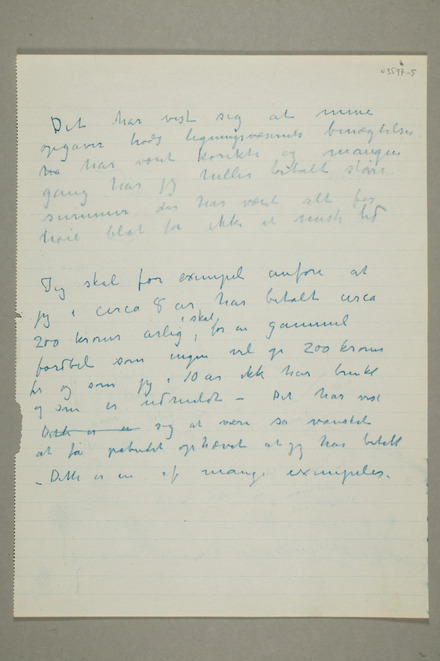 N3597-5
Det har vist sig at mine
opgaver trods ligningsvæsenets benægtelser
har været korrekte og mangen
gang har jeg hellere betalt større
summer der har været alt for
høie blot for ikke at miste tid
Jeg skal for exempel anføre at
jeg i circa 8 aar har betalt circa
200 kroner årlig i skat, for en gammel
fordbil som ingen vil gi 200 kroner
for og som jeg i 10 aar ikke har brukt
og som er udmeldt – Det har vist
Dette er en sig at være so vanskelig
at få ophævet at jeg har betalt
– Dette er en af mange exempeler.